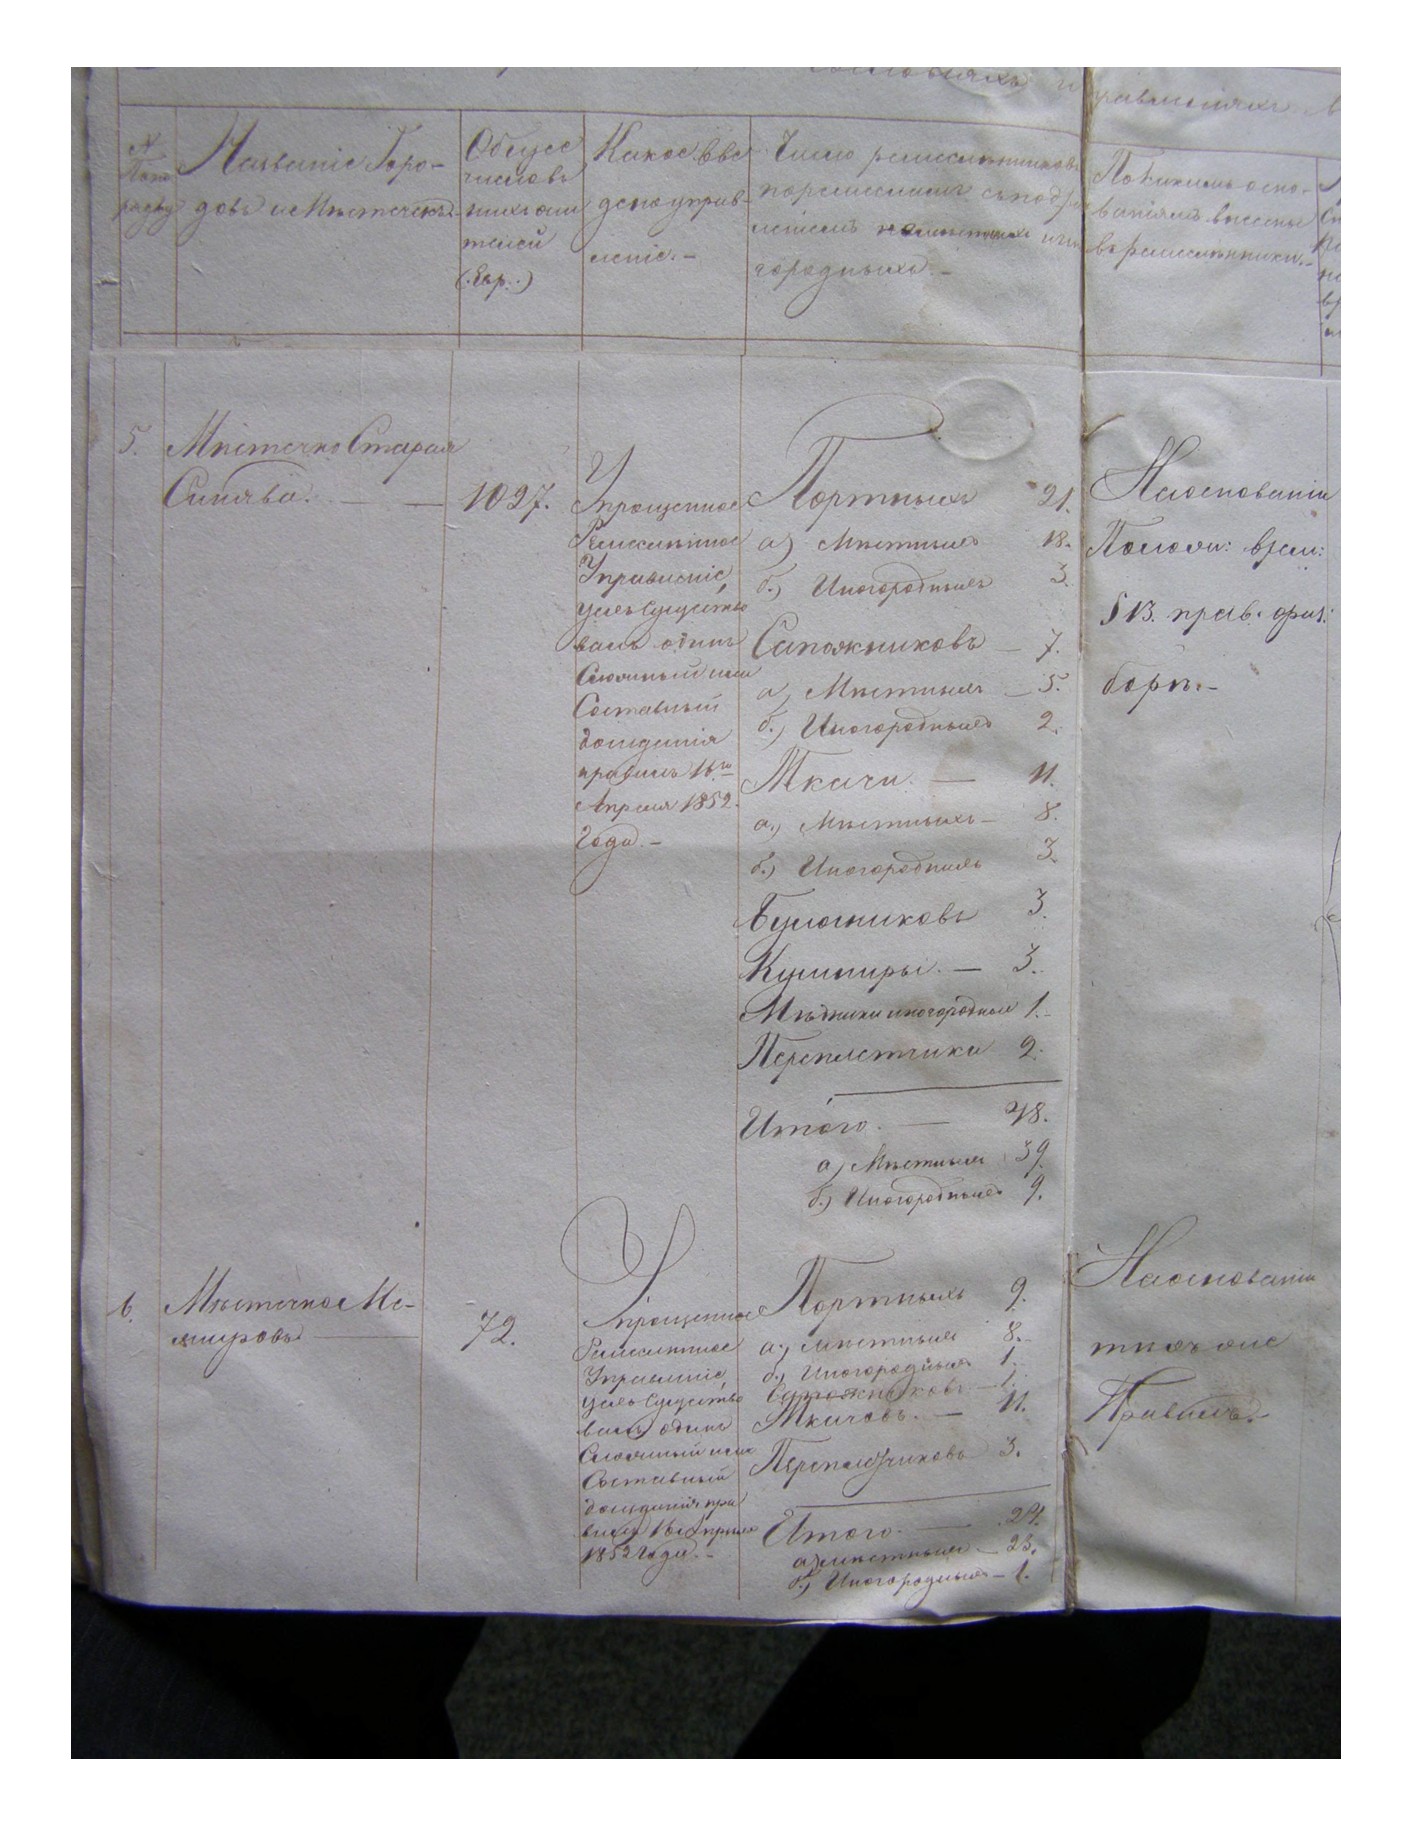 сословіяхъ и
№
По по-
рядку
Названіе Горо-
довъ и Мѣстечекъ.
Общее
число въ
нихъ жи
телей
(Евр.)
Какое вве
дено управ-
леніе.-
Число ремесленниковъ
по ремесламъ съ подраз
леніемъ на мѣстныхъ и ино
городныхъ.-
По какимъ осно-
ваніямъ внесены
въ ремесленники.-
5.
Мѣстечко Старая
Синява. —
— 1027.
Упрощенное
Ремесленное
Управленіе
гдѣ существо
валъ одинъ
Сложный или
Составный
до изданія
правилъ 16го
Апрѣля 1852.
Года.-
Портныхъ 21.
а) Мѣстныхъ 18.
б.) Иногородныхъ 3.
Сапожниковъ — 7.
а) Мѣстныхъ — 5.
б.) Иногородныхъ 2.
Ткачи. — 11.
а.) Мѣстныхъ — 8.
б.) Иногородныхъ 3.
Булочниковъ 3.
Кушниры. — 3.
Мѣдники иногородные 1.-
Переплетчики 2.
Итого. — 48.
а) Мѣстныхъ 39.
б.) Иногородныхъ 9.
На основаніи
Полож: врем:
§ 13. прав.
6.
Мѣстечко Ме-
жировъ —
72.
Упрощенное
Ремесленное
Управленіе
гдѣ существо
валъ одинъ
Сложный или
Составный
до изданія пра
вилъ 16 Апрѣля
1852 Года.-
Портныхъ 9.
а.) Мѣстныхъ 8.-
б.) Иногородныхъ 1.
Сапожниковъ — 1.
Ткачовъ. — 11.
Переплетчиковъ 3.
Итого. — 24.
а) мѣстныхъ — 23.
б.) Иногородныхъ — 1.
На основаніи
тѣхъ же
Правилъ.-